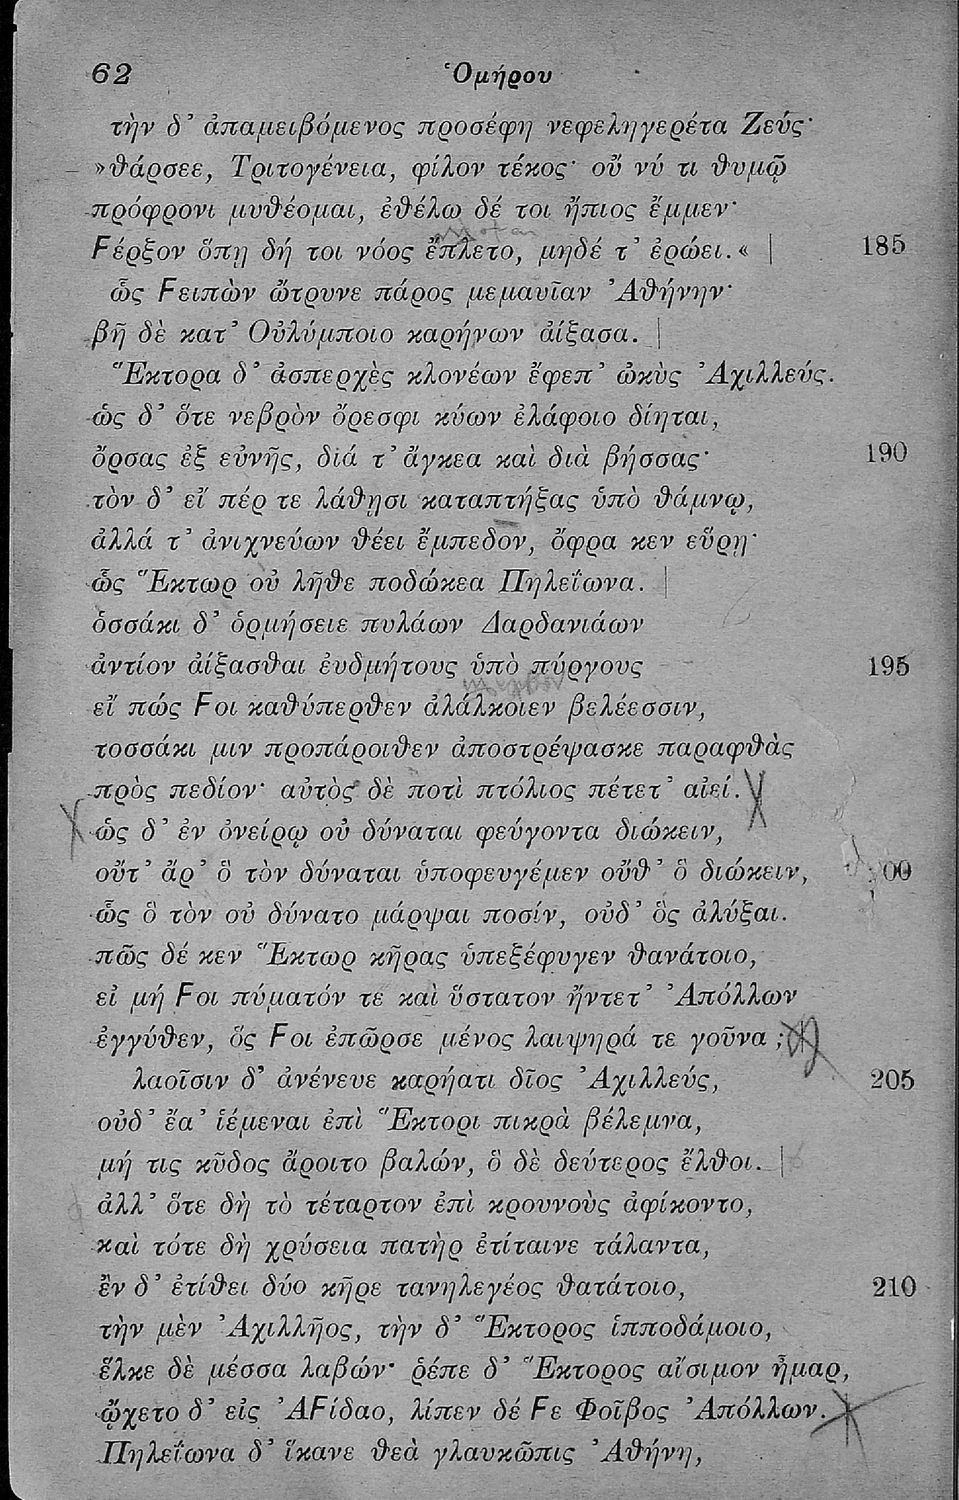 62 Ὁμήρου
τὴν δ᾽ ἀπαμειβόμενος προσέφη νεφεληγερέτα Ζεύς·
»θάρσεε, Τριτογένεια, φίλον τέκος· οὔ νύ τι θυμῷ
πρόφρονι μυθέομαι, ἐθέλω δέ τοι ἤπιος ἔμμεν·
Ϝέρξον ὅπῃ δή τοι νόος ἔπλετο, μηδέ τ᾽ ἐρώει.« 185
ὣς Ϝειπὼν ὤτρυνε πάρος μεμαυῖαν Ἀθήνην·
βῆ δὲ κατ᾽ Οὐλύμποιο καρήνων ἀίξασα.
Ἕκτορα δ᾽ ἀσπερχὲς κλονέων ἔφεπ᾽ ὠκὺς Ἀχιλλεύς.
ὡς δ᾽ ὅτε νεβρὸν ὄρεσφι κύων ἐλάφοιο δίηται,
ὄρσας ἐξ εὐνῆς, διά τ᾽ ἄγκεα καὶ διὰ βήσσας· 190
τὸν δ᾽ εἴ πέρ τε λάθῃσι καταπτήξας ὑπὸ θάμνῳ,
ἀλλά τ᾽ ἀνιχνεύων θέει ἔμπεδον, ὄφρα κεν εὕρῃ·
ὣς Ἕκτωρ οὐ λῆθε ποδώκεα Πηλεΐωνα.
ὁσσάκι δ᾽ ὁρμήσειε πυλάων Δαρδανιάων
ἀντίον ἀίξασθαι ἐυδμήτους ὑπὸ πύργους 195
εἴ πώς Ϝοι καθύπερθεν ἀλάλκοιεν βελέεσσιν,
τοσσάκι μιν προπάροιθεν ἀποστρέψασκε παραφθὰς
πρὸς πεδίον· αὐτὸς δὲ ποτὶ πτόλιος πέτετ᾽ αἰεί.
ὡς δ᾽ ἐν ὀνείρῳ οὐ δύναται φεύγοντα διώκειν,
οὔτ᾽ ἄρ᾽ ὃ τὸν δύναται ὑποφευγέμεν οὔθ᾽ ὃ διώκειν, 00
ὣς ὃ τὸν οὐ δύνατο μάρψαι ποσίν, οὐδ᾽ ὃς ἀλύξαι.
πῶς δέ κεν Ἕκτωρ κῆρας ὑπεξέφυγεν θανάτοιο,
εἰ μή Ϝοι πύματόν τε καὶ ὕστατον ἤντετ᾽ Ἀπόλλων
ἐγγύθεν, ὅς Ϝοι ἐπῶρσε μένος λαιψηρά τε γοῦνα;
λαοῖσιν δ᾽ ἀνένευε καρήατι δῖος Ἀχιλλεύς, 205
οὐδ᾽ ἔα᾽ ἱέμεναι ἐπὶ Ἕκτορι πικρὰ βέλεμνα,
μή τις κῦδος ἄροιτο βαλών, ὃ δὲ δεύτερος ἔλθοι.
ἀλλ᾽ ὅτε δὴ τὸ τέταρτον ἐπὶ κρουνοὺς ἀφίκοντο,
καὶ τότε δὴ χρύσεια πατὴρ ἐτίταινε τάλαντα,
ἐν δ᾽ ἐτίθει δύο κῆρε τανηλεγέος θατάτοιο, 210
τὴν μὲν Ἀχιλλῆος, τὴν δ᾽ Ἕκτορος ἱπποδάμοιο,
ἕλκε δὲ μέσσα λαβών· ῥέπε δ᾽ Ἕκτορος αἴσιμον ἦμαρ,
ᾤχετο δ᾽ εἰς ἈϜίδαο, λίπεν δέ Ϝε Φοῖβος Ἀπόλλων.
Πηλεΐωνα δ᾽ ἵκανε θεὰ γλαυκῶπις Ἀθήνη,